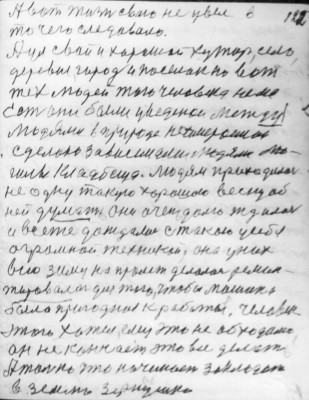 А вот жизнь свою не увел в 122
то чего следовало.
А ул свой и хороший хутор, село,
деревня город и поселок но вот
тех людей того человека нема
они были между
Людями в природе
сделано зависимыми людям
Кладбища. Людям приходилося
не одну такую хорошою весну об
ней думать, они очень долго ждалися
и все же дождалися с такою у себя
огромной техникой, она у них
всю зиму на пролет делалася ремон-
тировалася для того, чтобы машина
была пригодная к работы, человек
этого хотел, ему это не обходимо
он не кончает это все делать
А только что начинает закладать
в землю зернушко